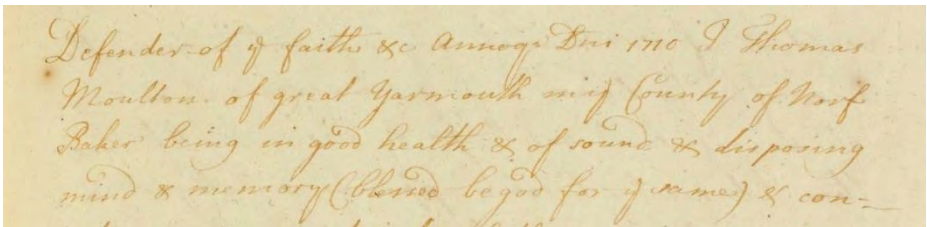 Defender of ye faith &c Annoq Dni 1710 I Thomas
Moulton of great Yarmouth in ye County of Norf
Baker being in good health & of sound & disposing
mind & memory (blessed be god for ye same) & con=